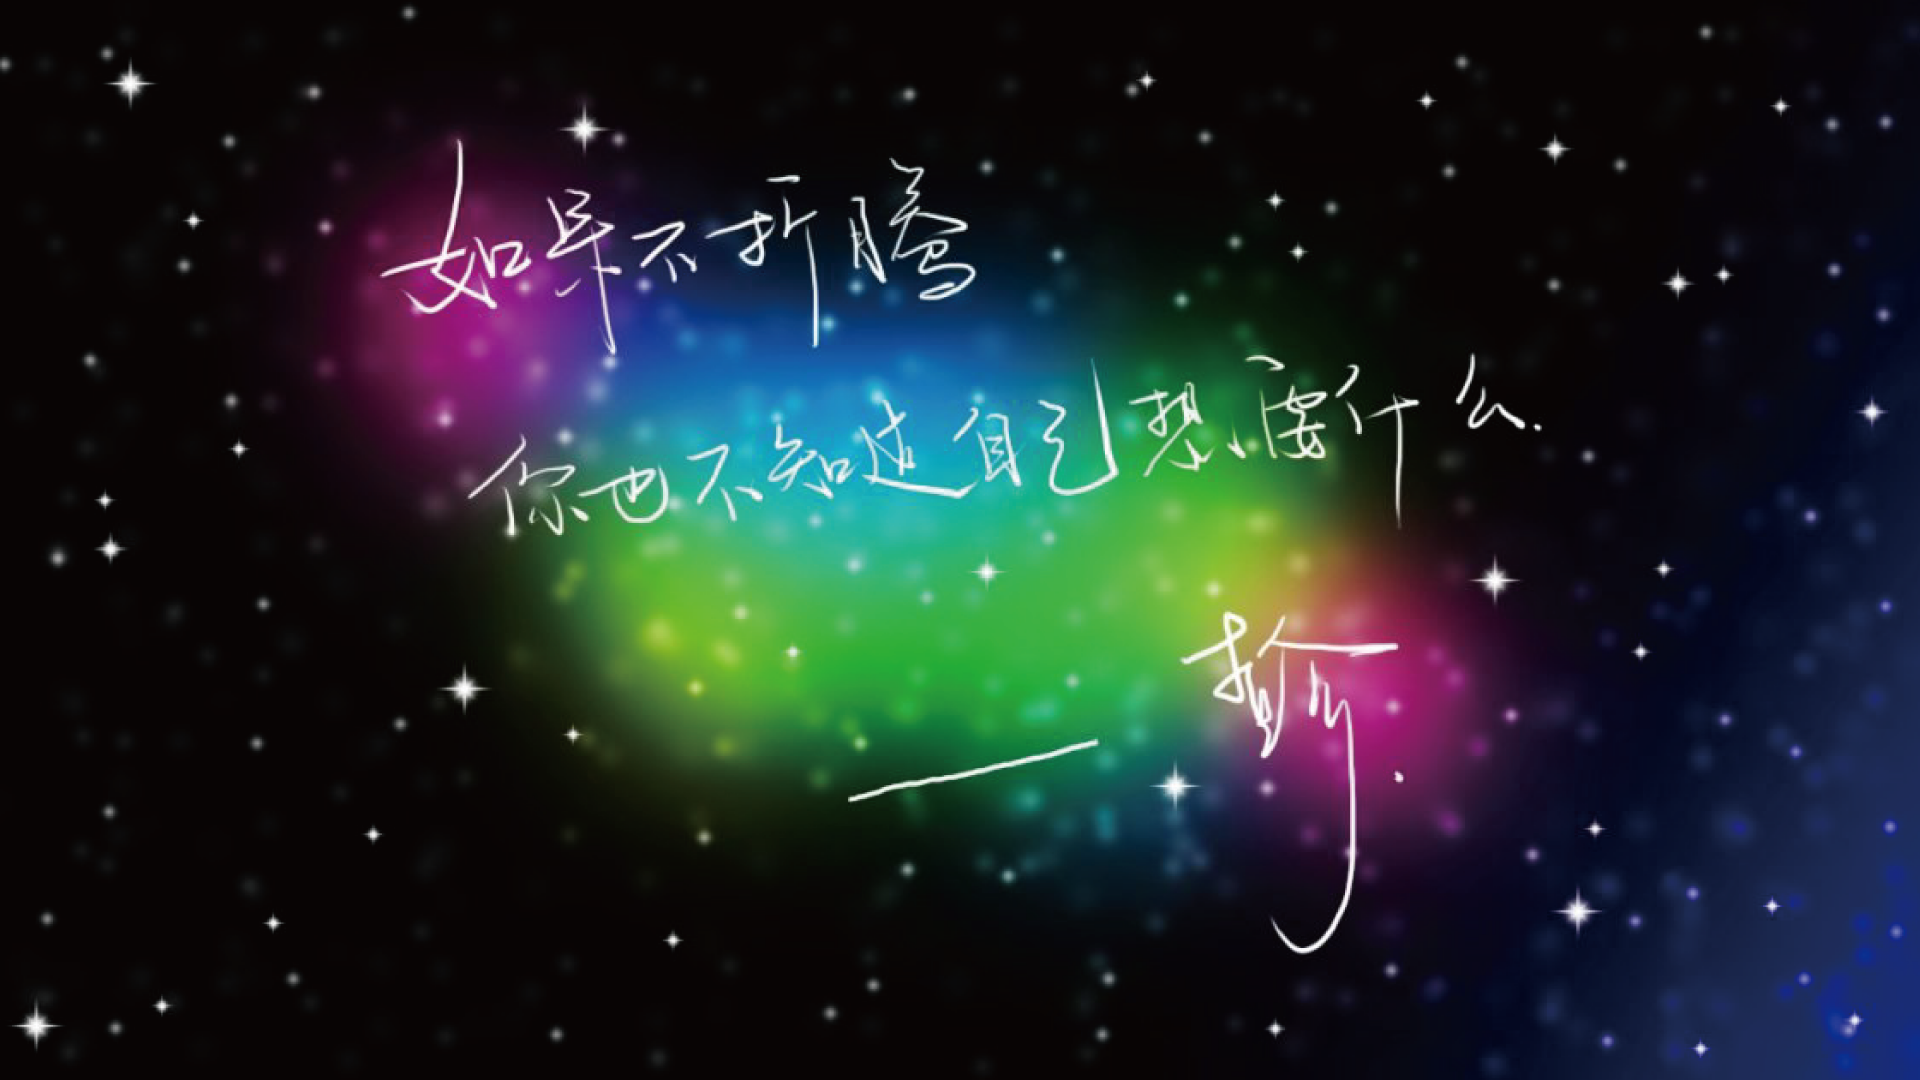 如果不折腾
你也不知道自己想要什么.